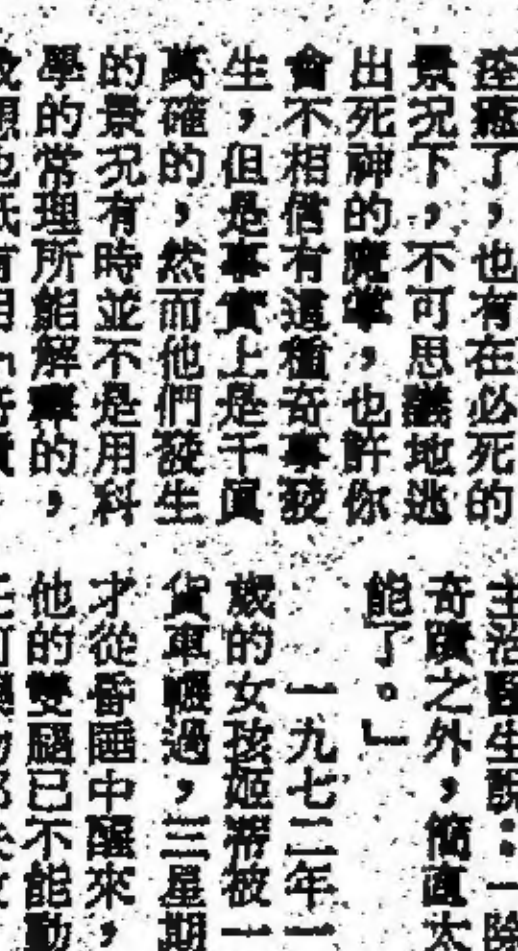 座癒了，也有在必死的
景況下，不可思議地逃
出死神的魔掌，也許你
會不相信有這種奇事發
生，但是事實上是千眞
萬確的，然而他們發生
的景況有時並不是用科
學的常理所能解釋的，
生說：「除
奇蹟之外，簡直太
能了。」
一九七二年一
歲的女孩姬蒂被一
貨車輾過，三星期
才從昏睡中醒來，
他的雙腿已不能動